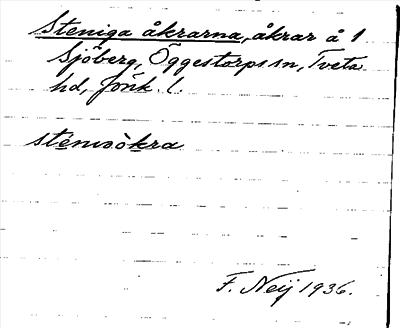 Steniga åkrarna, åkrar å 1
Sjöberg, Öggestorps sn, Tveta
hd, Jönk. l.
F. Neij 1936.